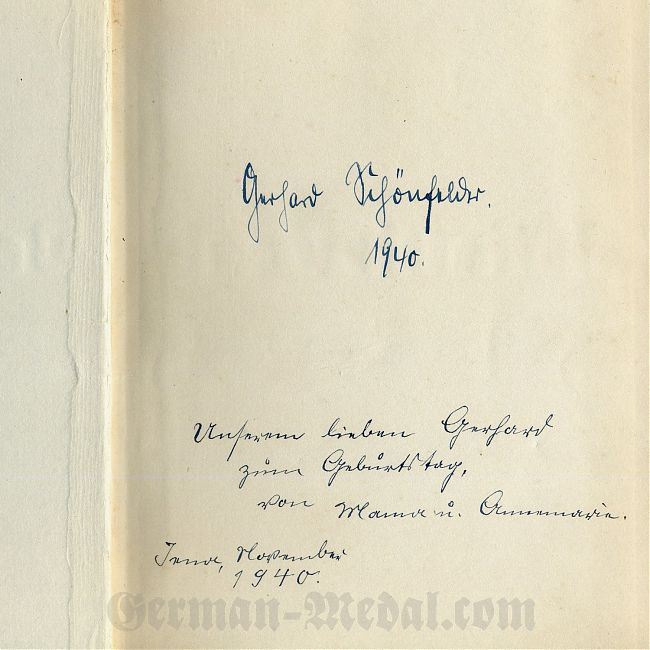 Gerhard Schönfelder.
1940.
Unserem lieben Gerhard
zum Geburtstag,
von Mama u. Annemarie.
Jena, November
1940.
German-Medal.com